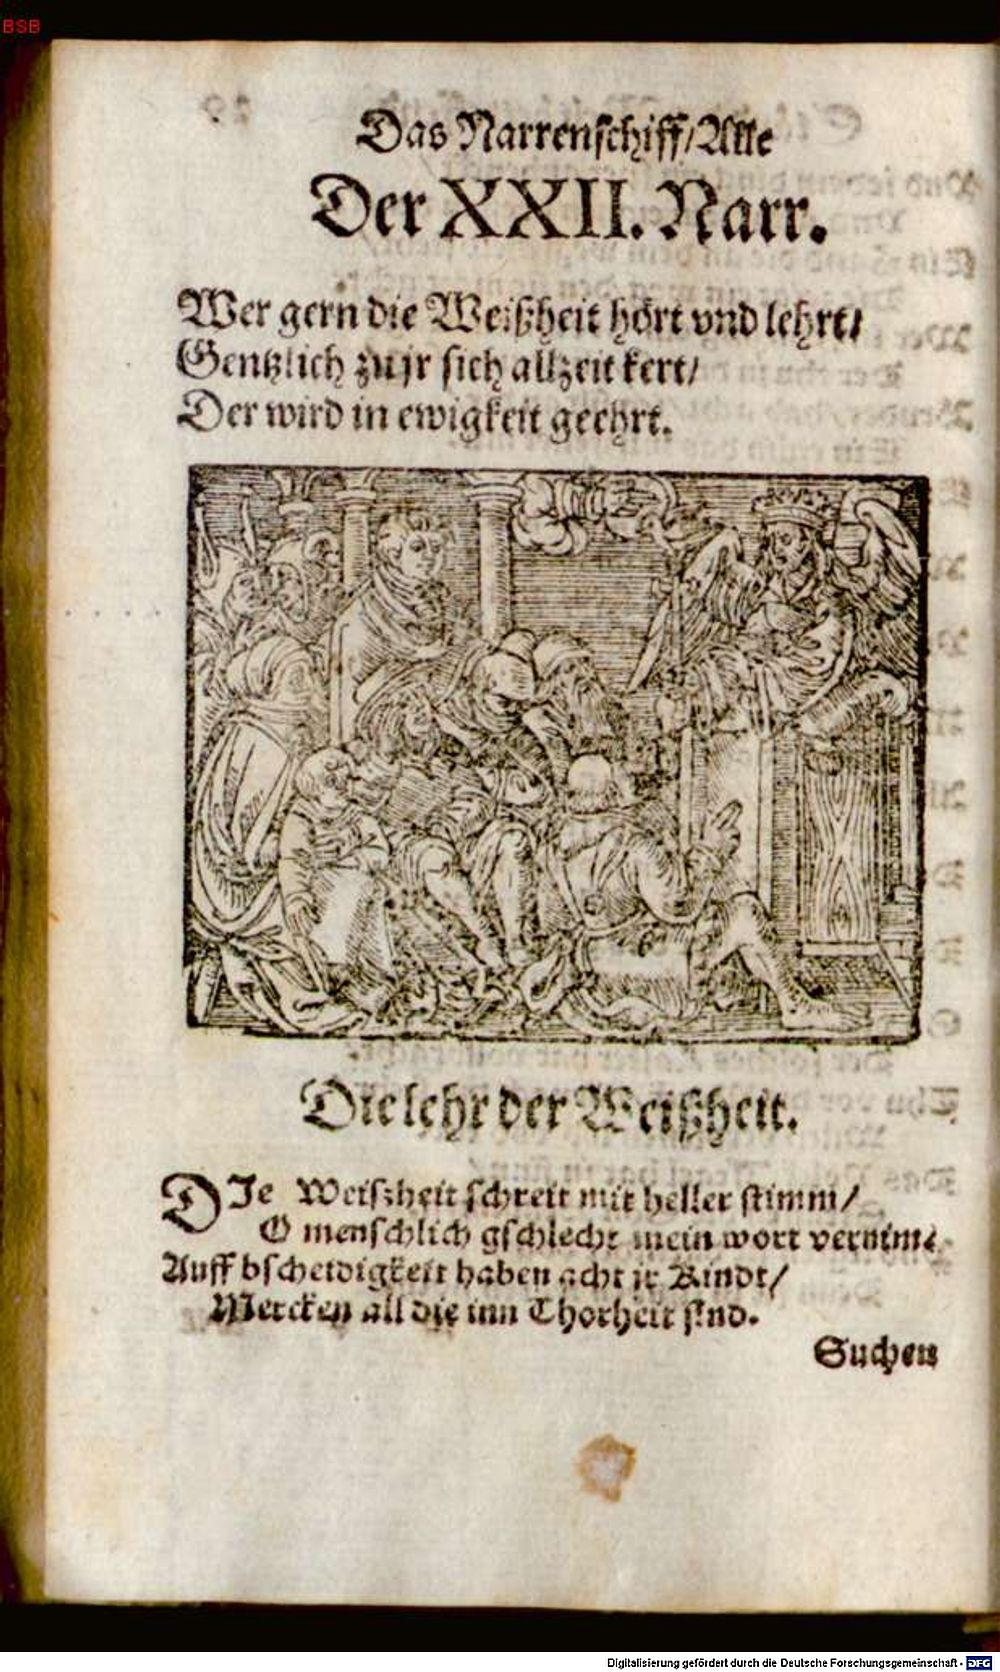 BSB
Das Narrenschiff/Alle
Der XXII. Narr.
Wer gern die Weißheit hört vnd lehrt/
Gentzlich zu jr sich allzeit kert/
Der wird in ewigkeit geehrt.
Die lehr der Weißheit.
DIe Weißheit schreit mit heller stimm/
O menschlich gschlecht mein wort vernim/
Auff bscheidigkeit haben acht jr Kindt/
Mercken all die inn Thorheit sind.
Suchen
Digitalisierung gefördert durch die Deutsche Forschungsgemeinschaft - DFG